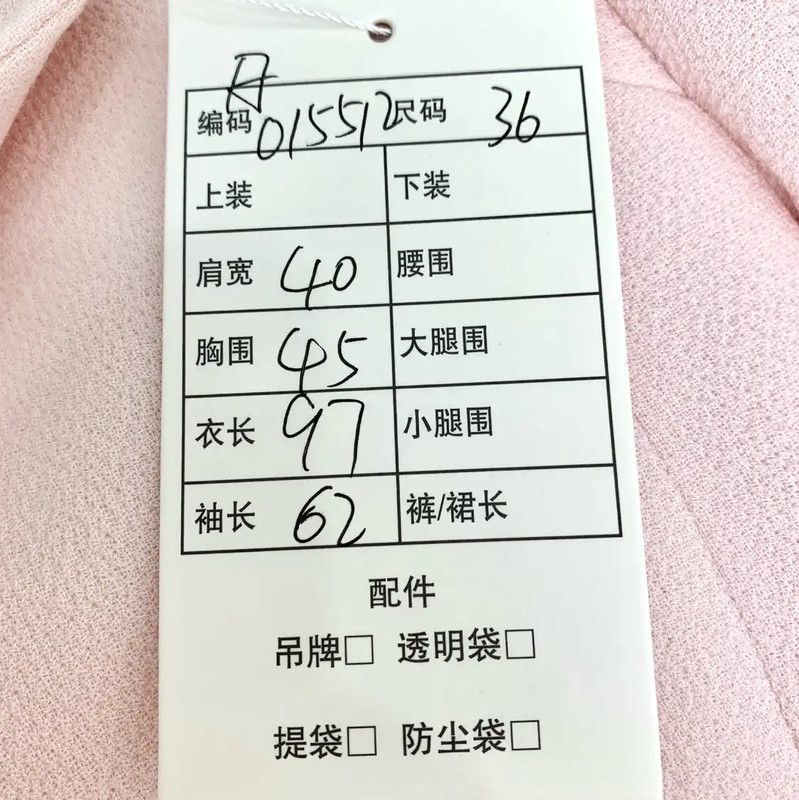 编码 015512 尺码 36
上装 下装
肩宽 40 腰围
胸围 45 大腿围
衣长 97 小腿围
袖长 62 裤/裙长
配件
吊牌□ 透明袋□
提袋□ 防尘袋□